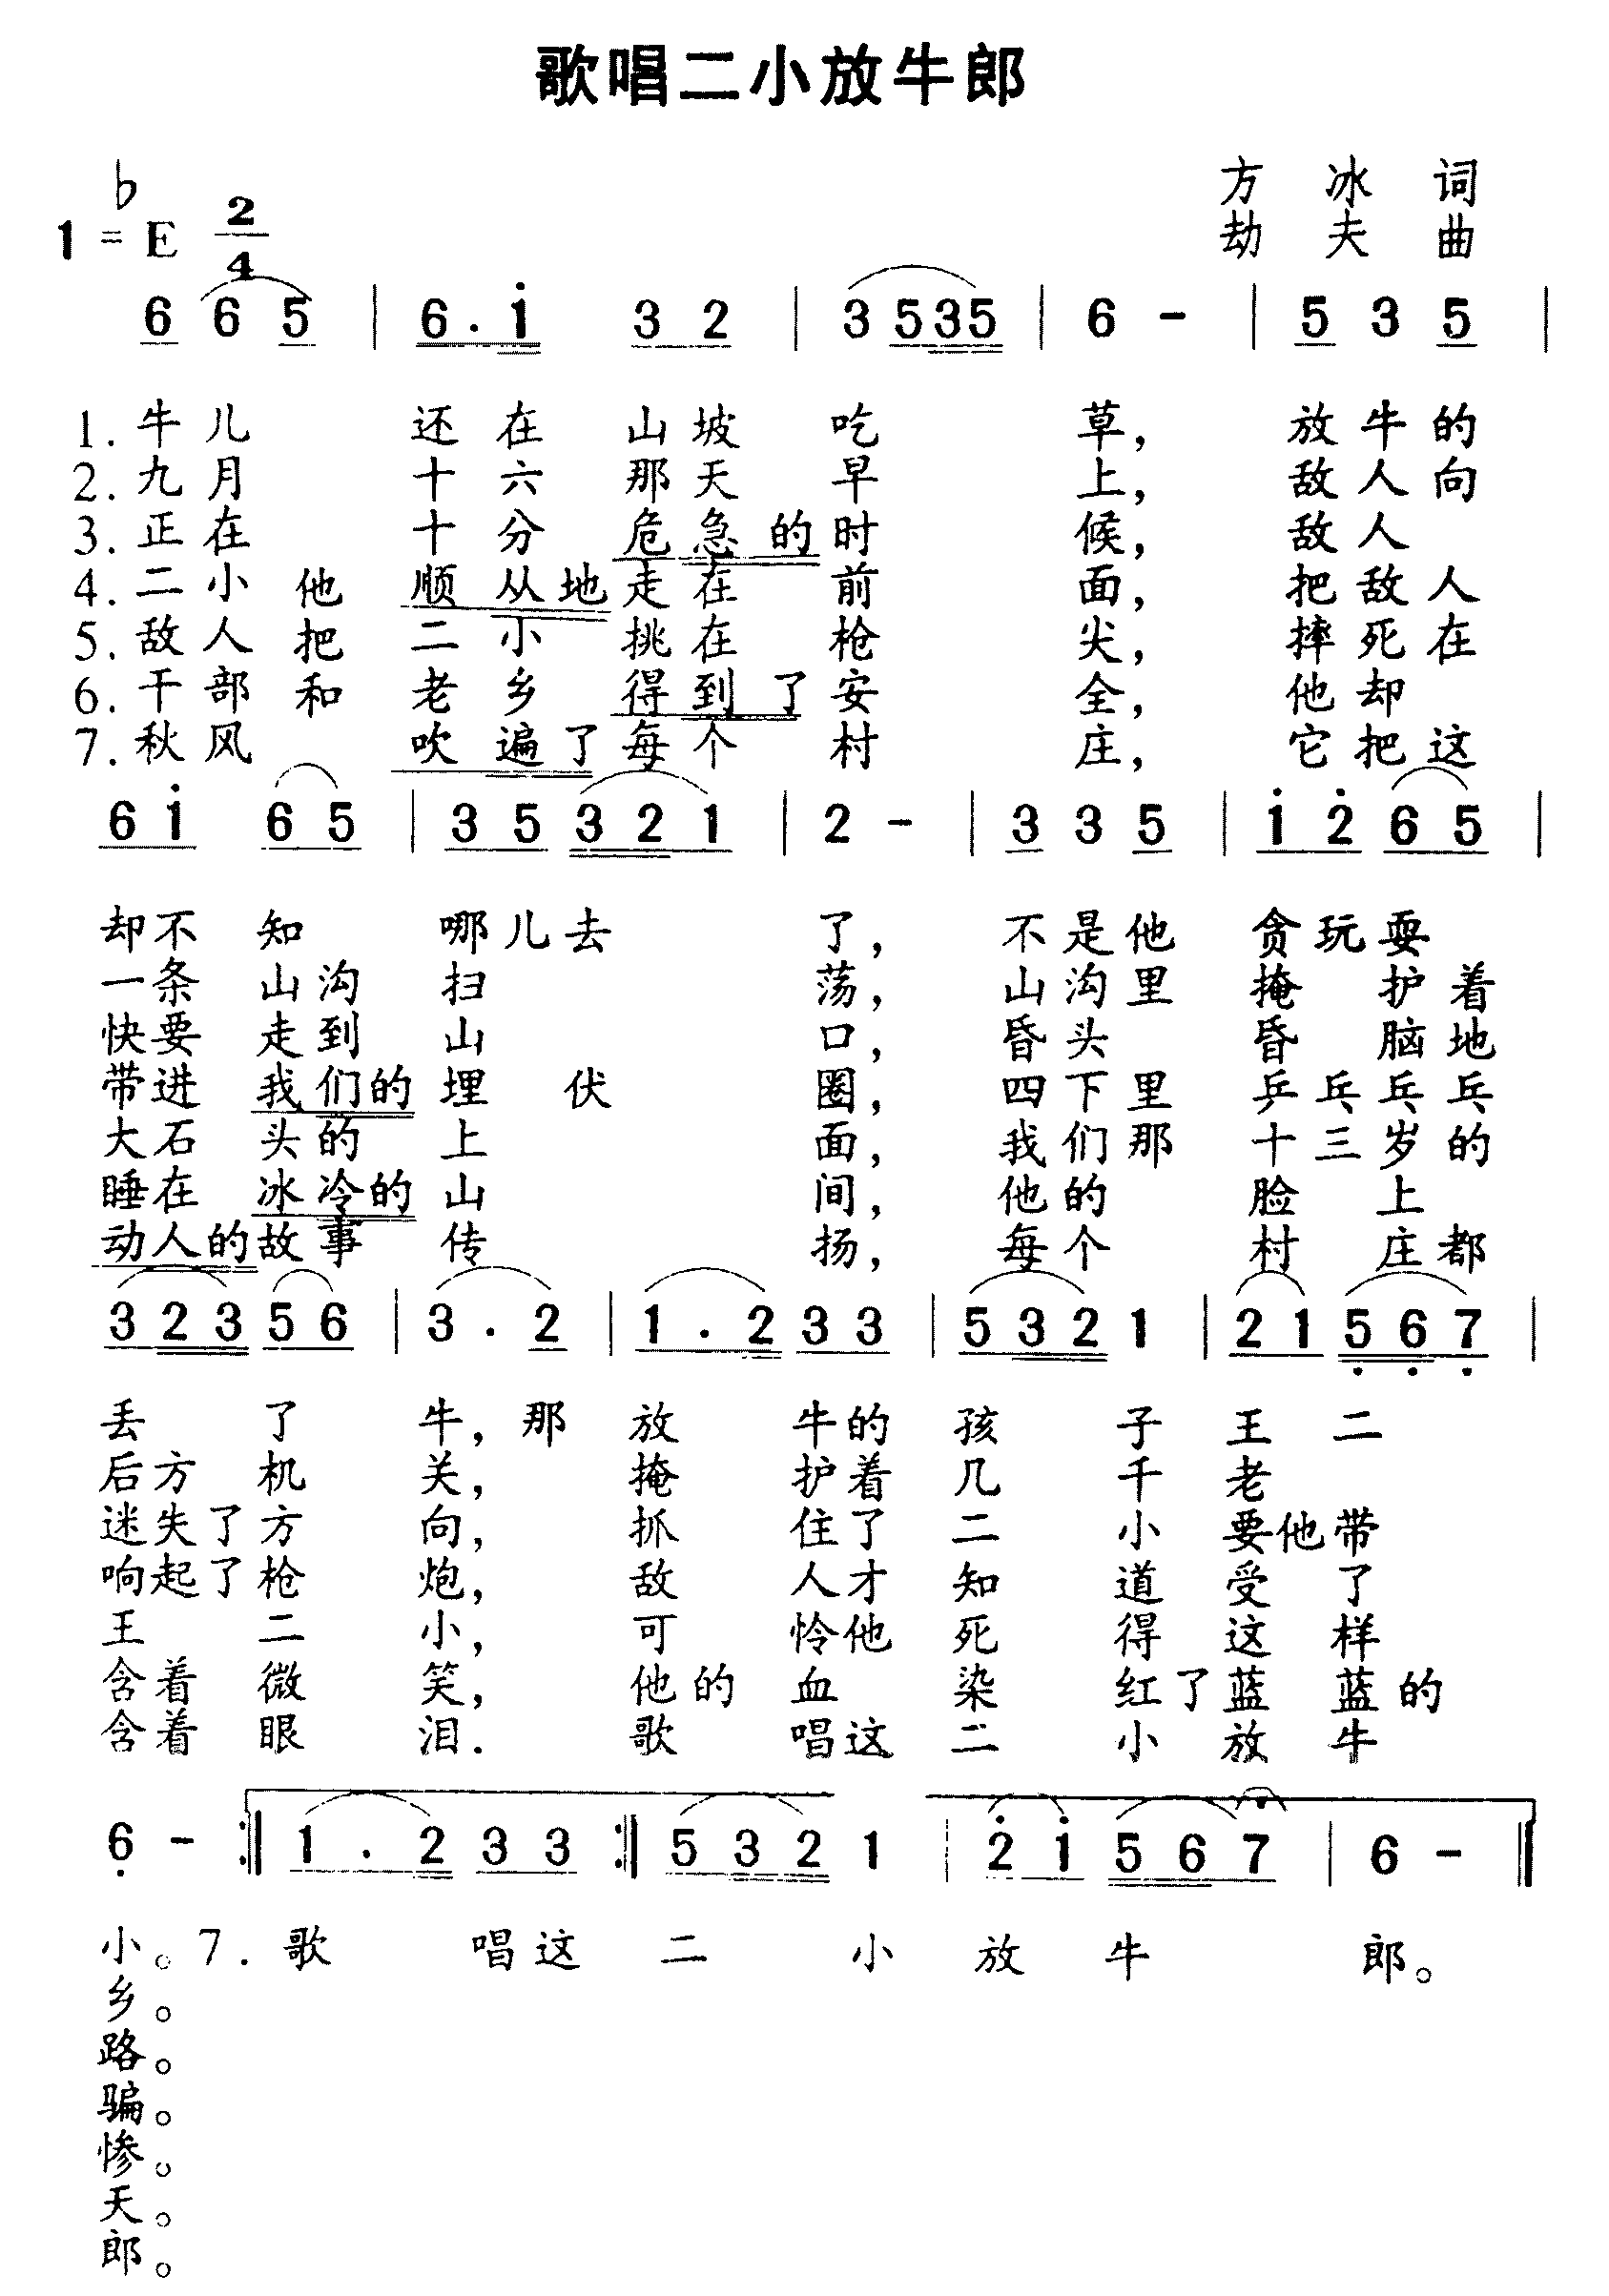 歌唱二小放牛郎
方 冰 词
1 = ♭E 2/4
劫 夫 曲
6 6 5 | 6 . i 3 2 | 3 5 3 5 | 6 - | 5 3 5 |
1. 牛儿 还在 山坡 吃 草， 放牛的
2. 九月 十六 那天 早 上， 敌人向
3. 正在 十分 危急的时 候， 敌人
4. 二小他 顺从地走在 前 面， 把敌人
5. 敌人把 二小 挑在 枪 尖， 摔死在
6. 干部和 老乡 得到了安 全， 他却
7. 秋风 吹遍了每个 村 庄， 它把这
6 i 6 5 | 3 5 3 2 1 | 2 - | 3 3 5 | i 2̇ 6 5 |
却不 知 哪儿去 了， 不是他 贪玩耍
一条 山沟 扫 荡， 山沟里 掩 护着
快要 走到 山 口， 昏头 昏 脑地
带进 我们的埋 伏 圈， 四下里 乒乓乓乓
大石 头的 上 面， 我们那 十三岁的
睡在 冰冷的山 间， 他的 脸 上
动人的故事 传 扬， 每个 村 庄都
3 2 3 5 6 | 3 . 2 | 1 . 2 3 3 | 5 3 2 1 | 2 1 5̣ 6̣ 7̣ |
丢 了 牛，那 放 牛的 孩 子 王 二
后方 机 关， 掩 护着 几 千 老
迷失了方 向， 抓 住了 二 小 要他带
响起了枪 炮， 敌 人才 知 道 受 了
王 二 小， 可 怜他 死 得 这 样
含着 微 笑， 他的 血 染 红了蓝 蓝的
含着 眼 泪. 歌 唱这 二 小 放 牛
6̣ - :‖ 1 . 2 3 3 :‖ 5 3 2 1 | 2̇ i 5 6 7 | 6 - ‖
小。7. 歌 唱这 二 小 放 牛 郎。
乡。
路。
骗。
惨。
天。
郎。